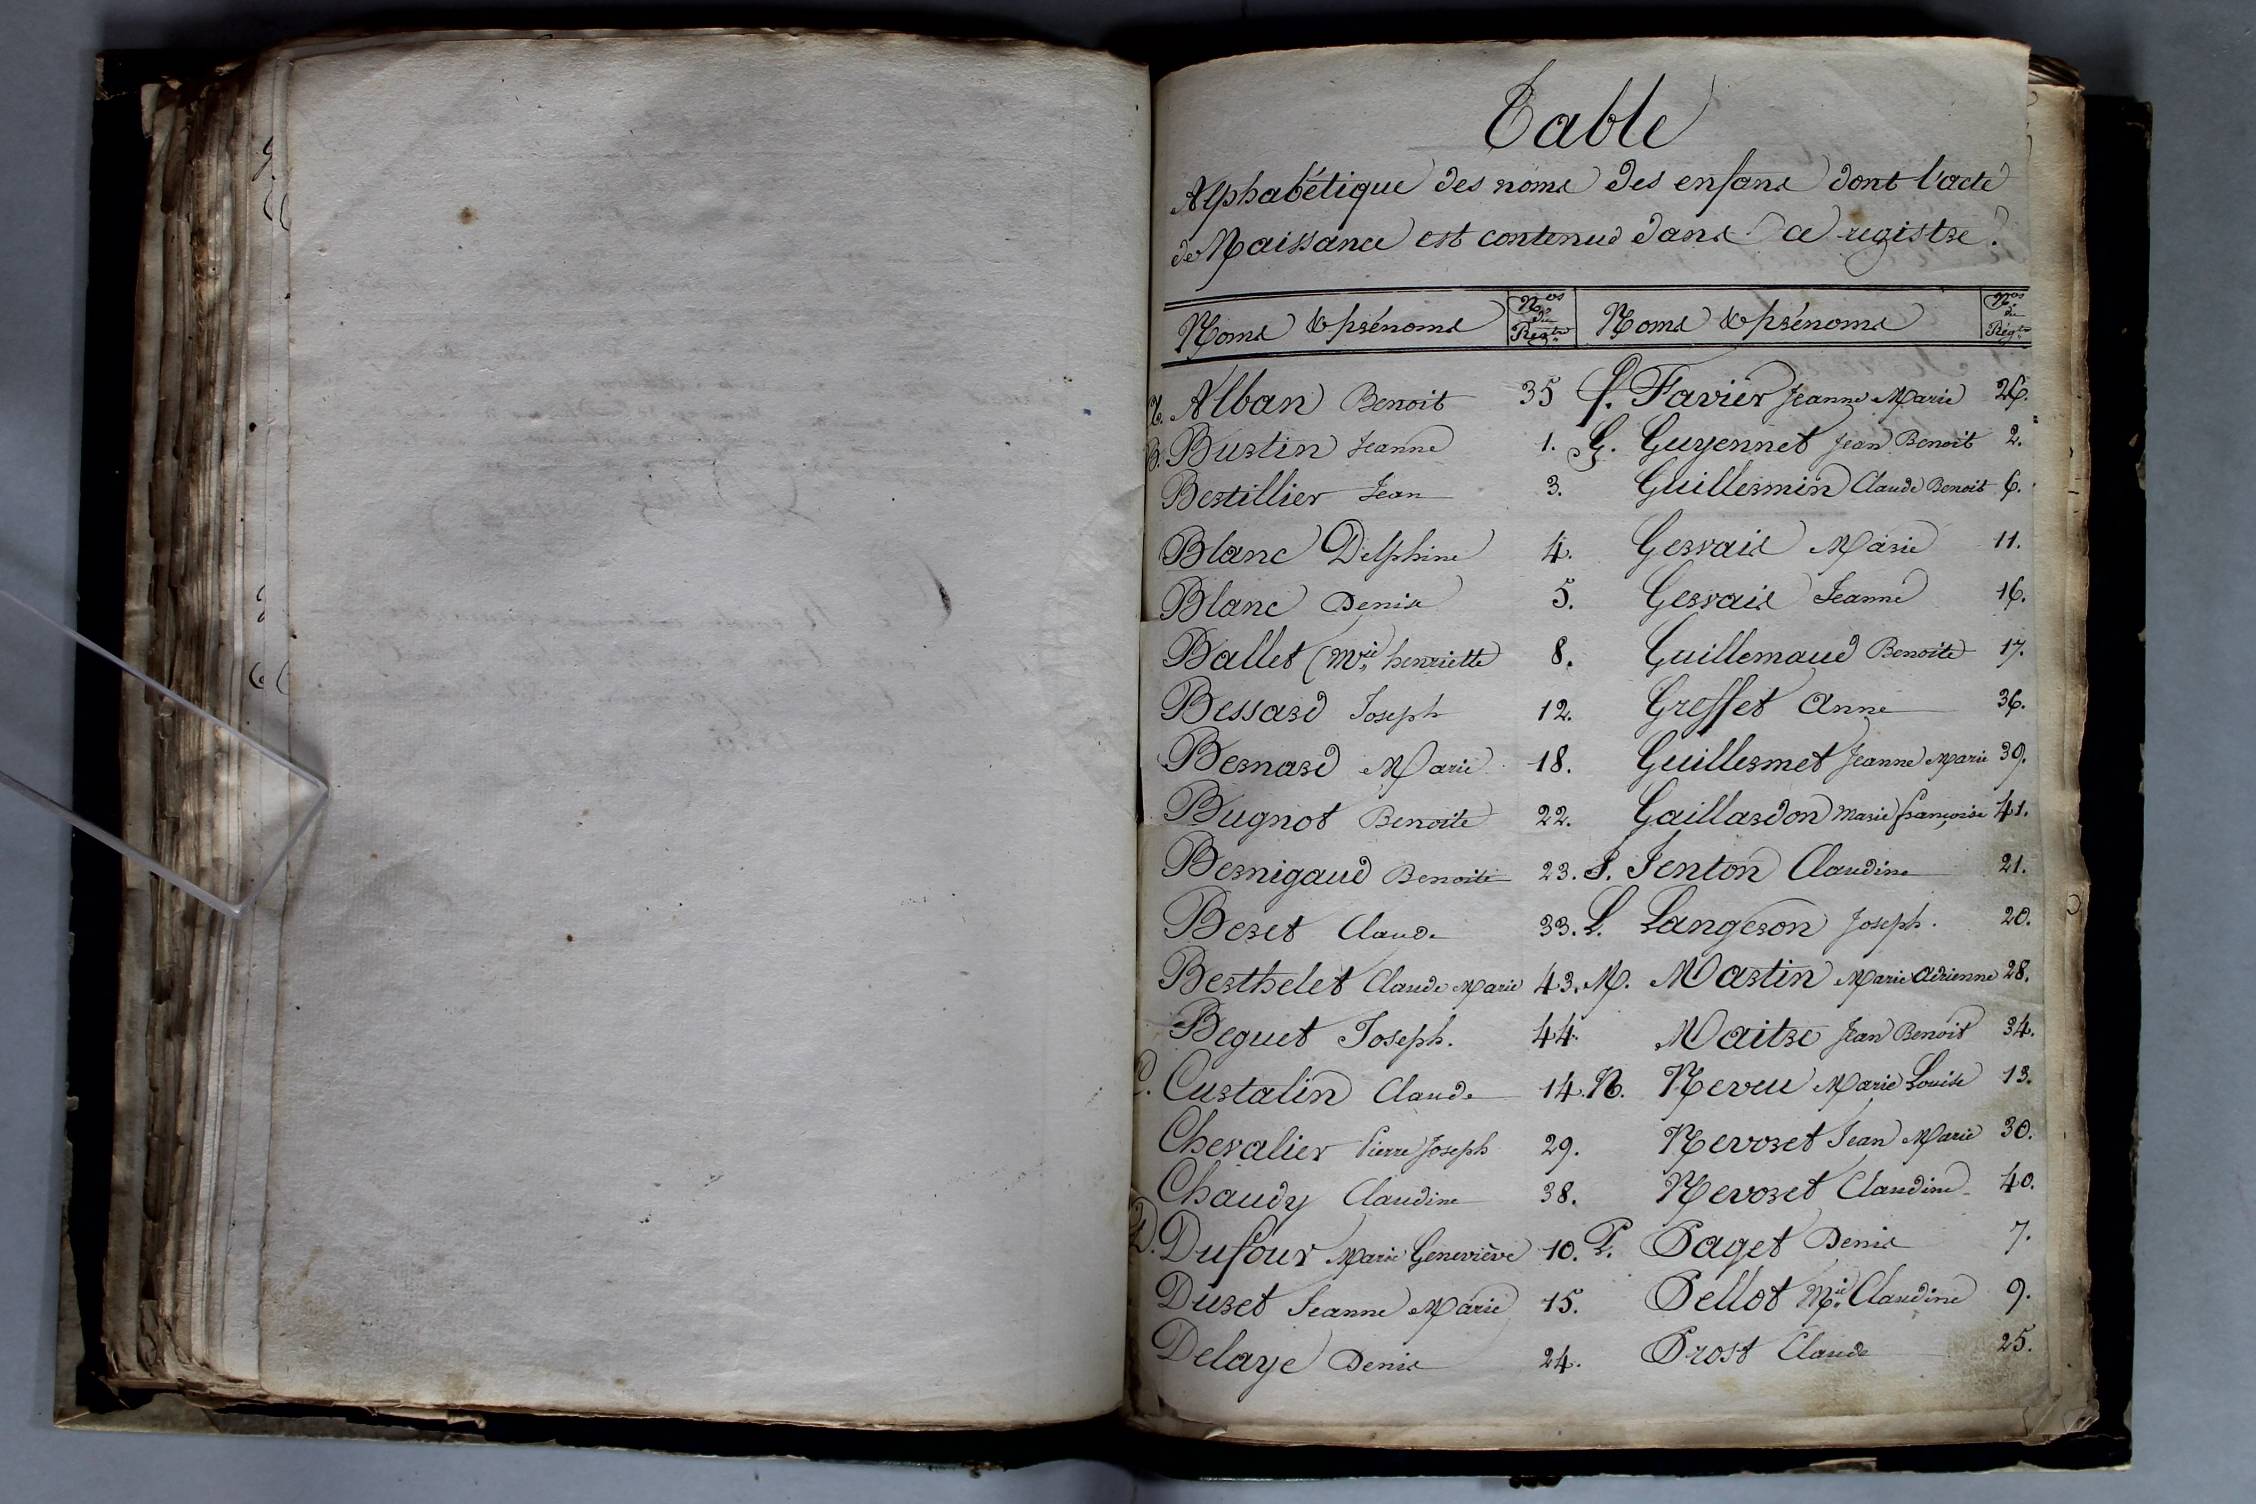 Table
Alphabétique des noms des enfans dont l'acte
de Naissance est contenue dans ce registre.
Noms & prénoms
Nos du Regtre
Noms & prénoms
Nos du Regtre
A. Alban Benoit 35
B. Burtin Jeanne 1.
Bertillier Jean 3.
Blanc Delphine 4.
Blanc Denis 5.
Ballet Mie henriette 8.
Bessard Joseph 12.
Bernard Marie 18.
Bugnot Benoite 22.
Bernigaud Benoite 23.
Beret Claude 33.
Berthelet Claude Marie 43.
Beguet Joseph. 44.
C. Curtalin Claude 14.
Chevalier Pierre Joseph 29.
Chaudy Claudine 38.
D. Dufour Marie Geneviève 10.
Duret Jeanne Marie 15.
Delaye Denis 24.
f. Favier Jeanne Marie 26.
G. Guyennet Jean Benoit 2.
Guillermin Claude Benoit 6.
Gervais Marie 11.
Gervais Jeanne 16.
Guillemaud Benoite 17.
Greffet Anne 36.
Guillermet Jeanne Marie 39.
Gaillardon Marie françoise 41.
J. Jenton Claudine 21.
L. Langeron Joseph. 20.
M. Martin Marie Adrienne 28.
Maitre Jean Benoit 34.
N. Neveu Marie Louise 13.
Nevoret Jean Marie 30.
Nevoret Claudine 40.
P. Paget Denis 7.
Pellot Mie Claudine 9.
Prost Claude 25.